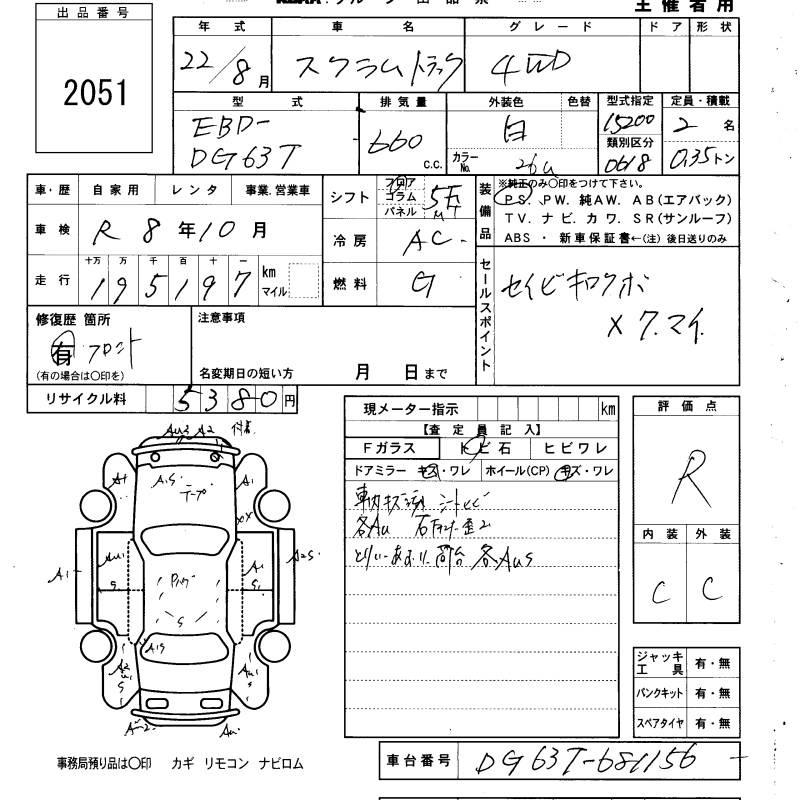 主催者用
出品番号
2051
年式 車名 グレード ドア 形状
22/8月 スクラムトラック 4WD
型式 排気量 外装色 色替 型式指定 定員・積載
EBD- DG63T 660 c.c. 白 カラーNo. 26U 15200 2名
類別区分 0618 0.35トン
車・歴 自家用 レンタ 事業.営業車
車検 R8年10月
走行 十万 万 千 百 十 一
195197 km マイル
シフト フロア コラム パネル 5F M
冷房 AC
燃料 G
装備品
※純正のみ○印をつけて下さい。
PS. PW. 純AW. AB(エアバック)
TV. ナビ. カワ. SR(サンルーフ)
ABS ・ 新車保証書←(注) 後日送りのみ
セールスポイント
セイビキロクボ
X 7.マイ.
修復歴 箇所
有 フロント
(有の場合は○印を)
注意事項
名変期日の短い方 月 日まで
リサイクル料 5380円
現メーター指示 km
【査定員記入】
Fガラス トビ石 ヒビワレ
ドアミラー キズ・ワレ ホイール(CP) キズ・ワレ
各AU
各AUS
評価点
R
内装 外装
C C
ジャッキ工具 有・無
パンクキット 有・無
スペアタイヤ 有・無
AU3 A2
A1 A1S テープ A1
XX
AU A1 A2S
A1 S S
S
A1S
A2 AU
S S
A-2 AU
事務局預り品は○印 カギ リモコン ナビロム
車台番号 DG63T-681156